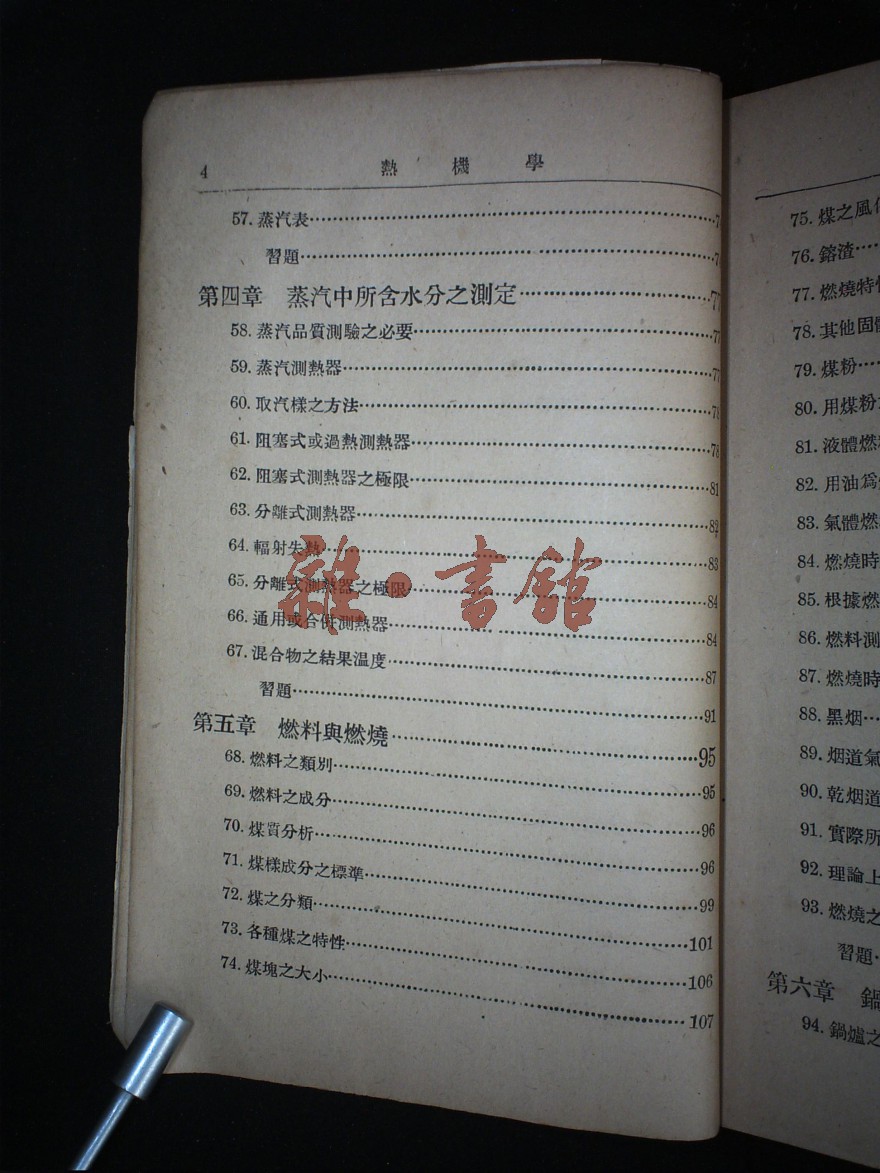 4 熱機學
57. 蒸汽表
習題
第四章 蒸汽中所含水分之測定 77
58. 蒸汽品質測驗之必要 77
59. 蒸汽測熱器 77
60. 取汽樣之方法 78
61. 阻塞式或過熱測熱器 78
62. 阻塞式測熱器之極限 81
63. 分離式測熱器 82
64. 輻射失熱 83
65. 分離式測熱器之極限 84
66. 通用或合併測熱器 84
67. 混合物之結果温度 87
習題 91
第五章 燃料與燃燒 95
68. 燃料之類別 95
69. 燃料之成分 96
70. 煤質分析 96
71. 煤樣成分之標準 99
72. 煤之分類 101
73. 各種煤之特性 106
74. 煤塊之大小 107
雜·書館
75. 煤之風
76. 鎔渣
77. 燃燒特
78. 其他固
79. 煤粉
80. 用煤粉
81. 液體燃
82. 用油爲
83. 氣體燃
84. 燃燒時
85. 根據燃
86. 燃料測
87. 燃燒時
88. 黑烟
89. 烟道氣
90. 乾烟道
91. 實際所
92. 理論上
93. 燃燒之
習題
第六章 鍋
94. 鍋爐之